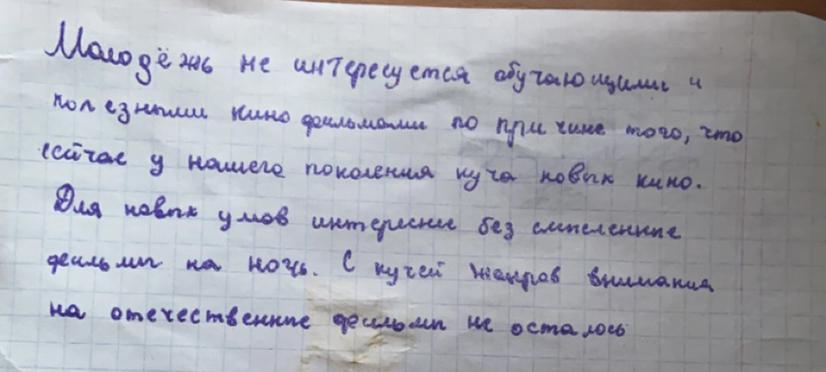 Молодёжь не интересуется обучающими и
полезными кино фильмами по причине того, что
сейчас у нашего поколения куча новых кино.
Для новых умов интереснее без смысленные
фильмы на ночь. С кучей жанров внимания
на отечественные фильмы не осталось